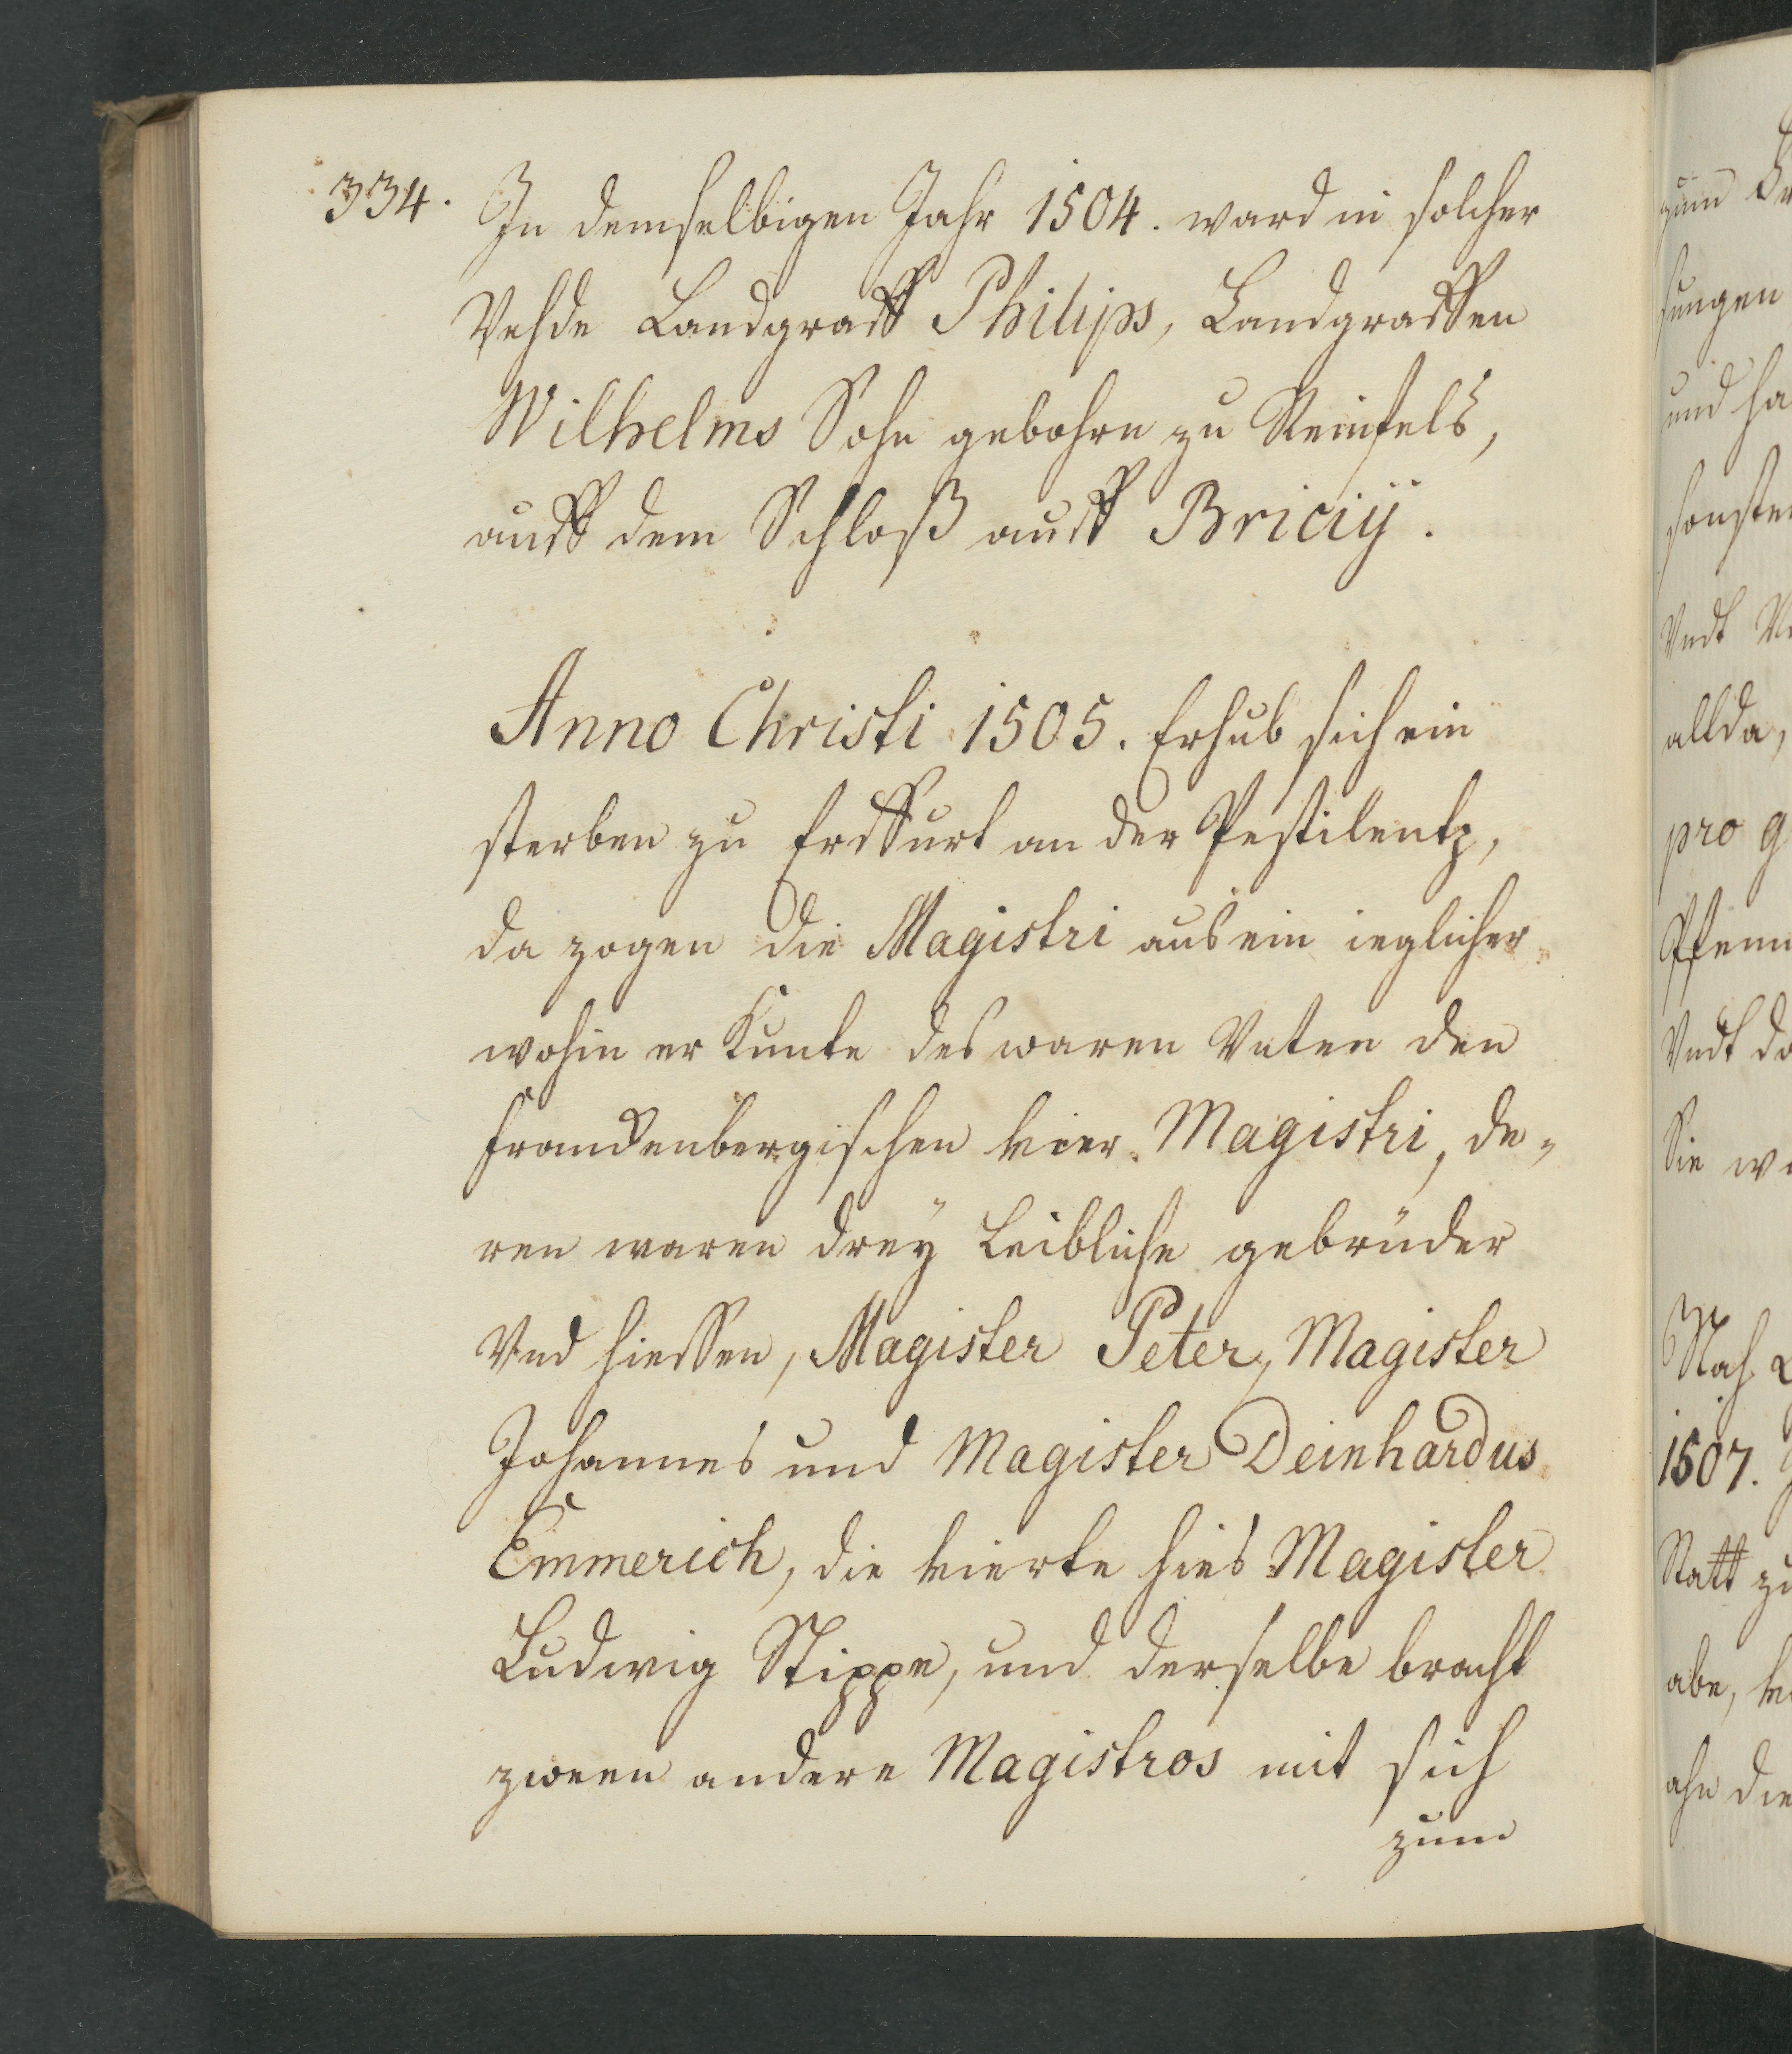 334. In demselbigen Jahr 1504. ward in solcher
Vehde Landgraff Philips, Landgraffen
Wilhelms Sohn gebohrn zu Reinfels,
auff dem Schloß auff Briciÿ.
Anno Christi 1505. Erhub sich ein
sterben zu Erffurt an der Pestilentz,
da zogen die Magistri aus ein ieglicher
wohin er Kunte des waren Vnten den
Franckenbergischen vier Magistri, de„
ren waren dreÿ Leibliche gebrüder
Vnd hiessen, Magister Peter, Magister
Johannes und Magister Deinhardus
Emmerich, die vierte hies Magister
Ludwig Stippe, und derselbe bracht
zween andere Magistros mit sich
zum
zum
sungen
und ha
sonsten
Vndt
allda,
pro g
Pfenn
Vndt da
Sie
Nach
1507.
Statt zu
abe,
ahn die